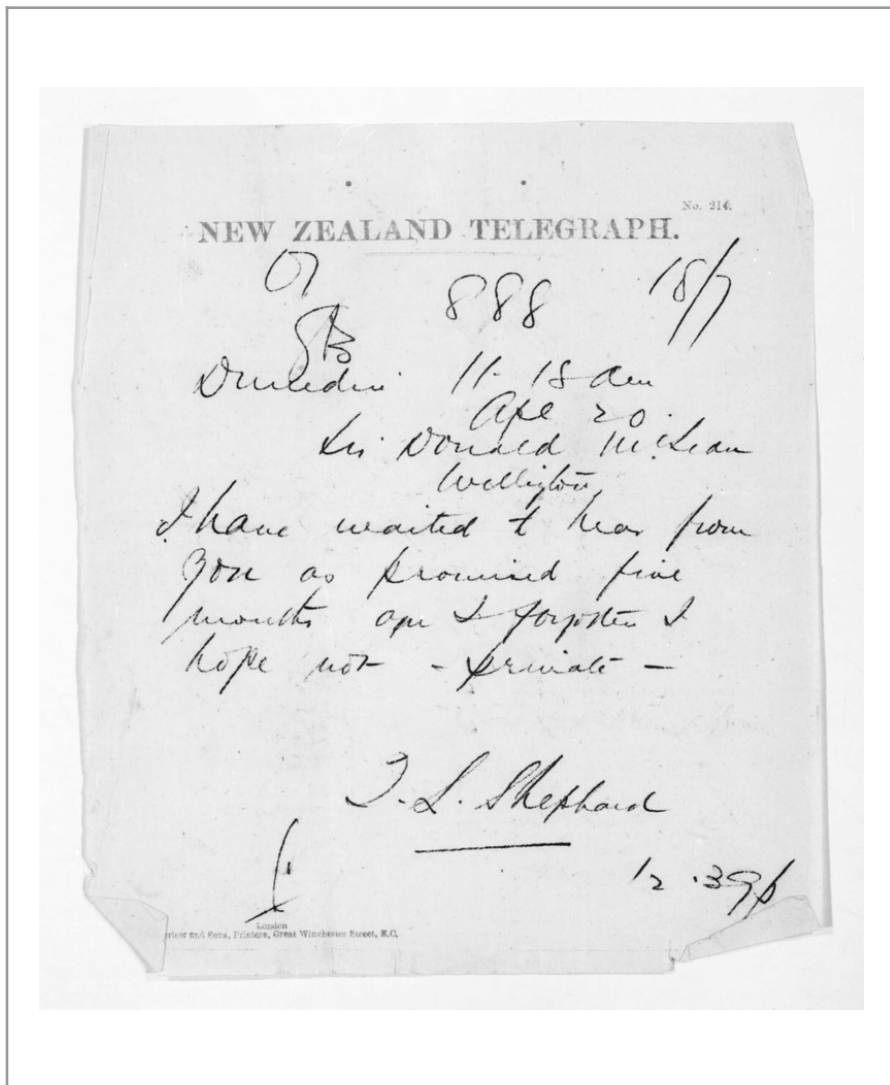 No. 214.
NEW ZEALAND TELEGRAPH.
888 18/7
Dunedin 11-18 am
Apl 20
Sir Donald McLean
Wellington
I have waited to hear from
you as promised five
months ago & forgotten I
hope not - private -
T. L. Shephard
12.39p
London
and Sons, Printers, Great Winchester Street, E.C.